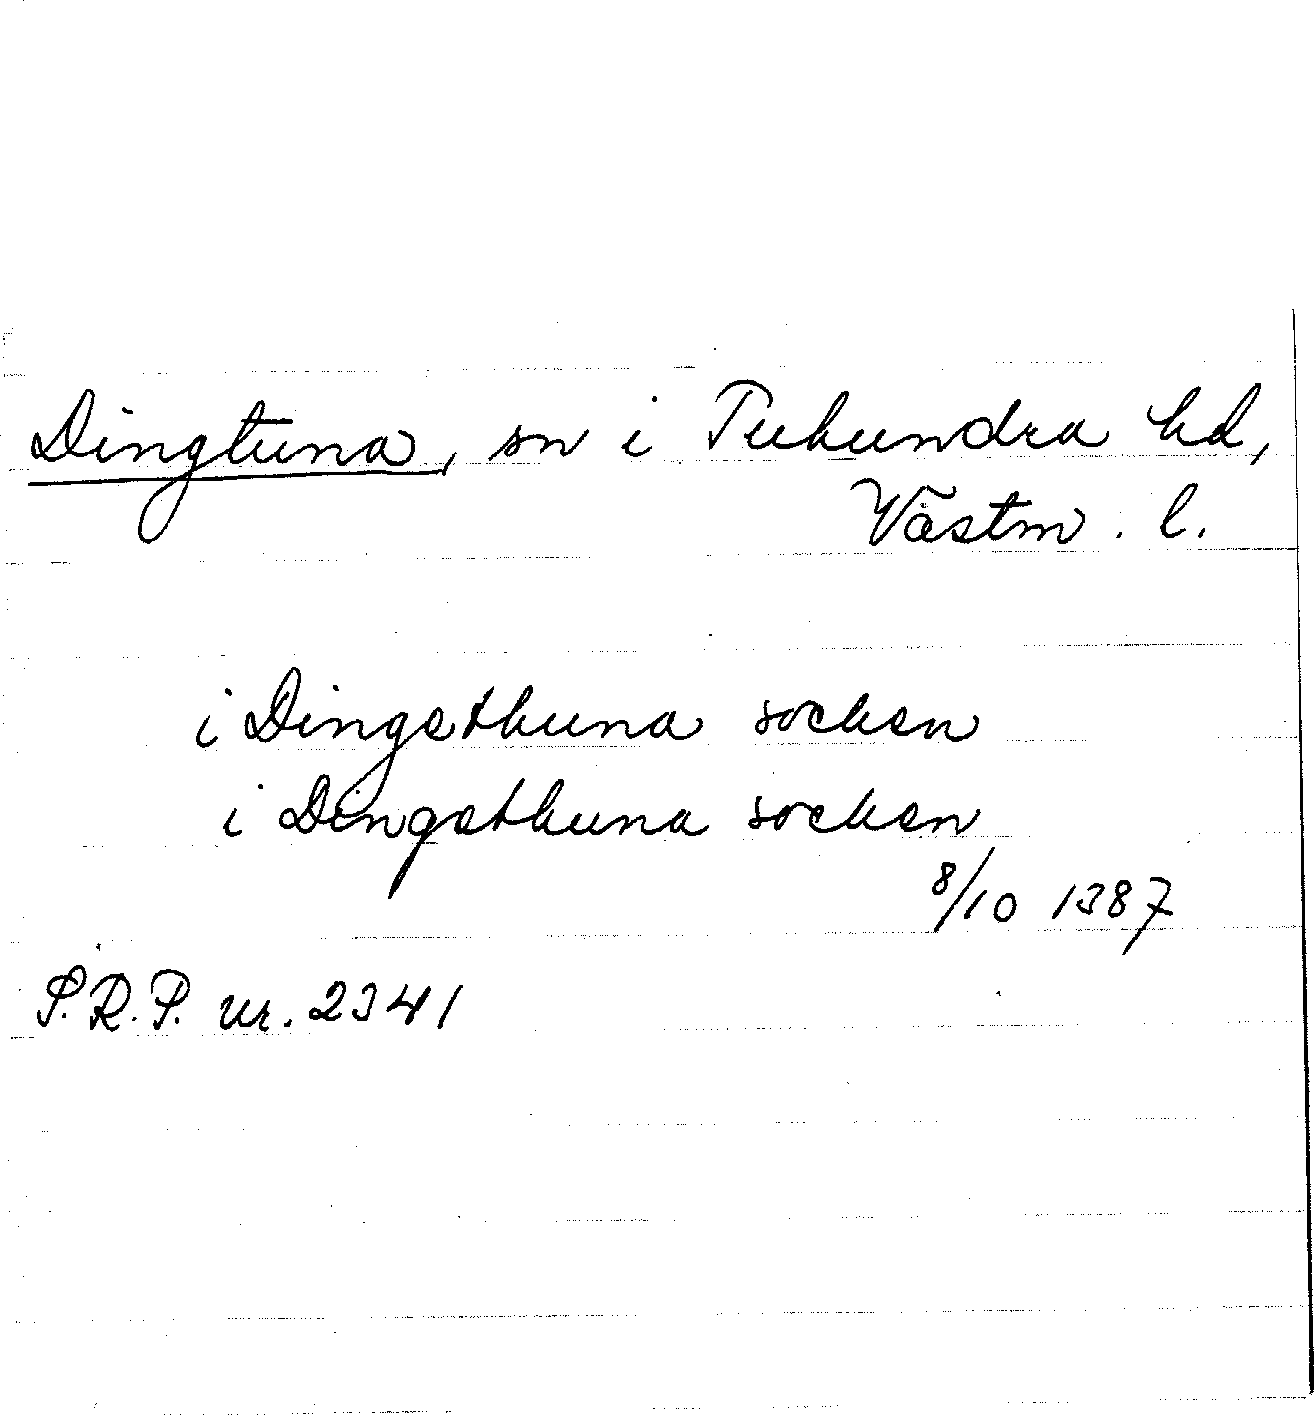 Dingtuna, sn i Tuhundra hd,
Västm. l.
i Dingethuna socken
i Dingethuna socken
8/10 1387
S.R.P. nr. 2341